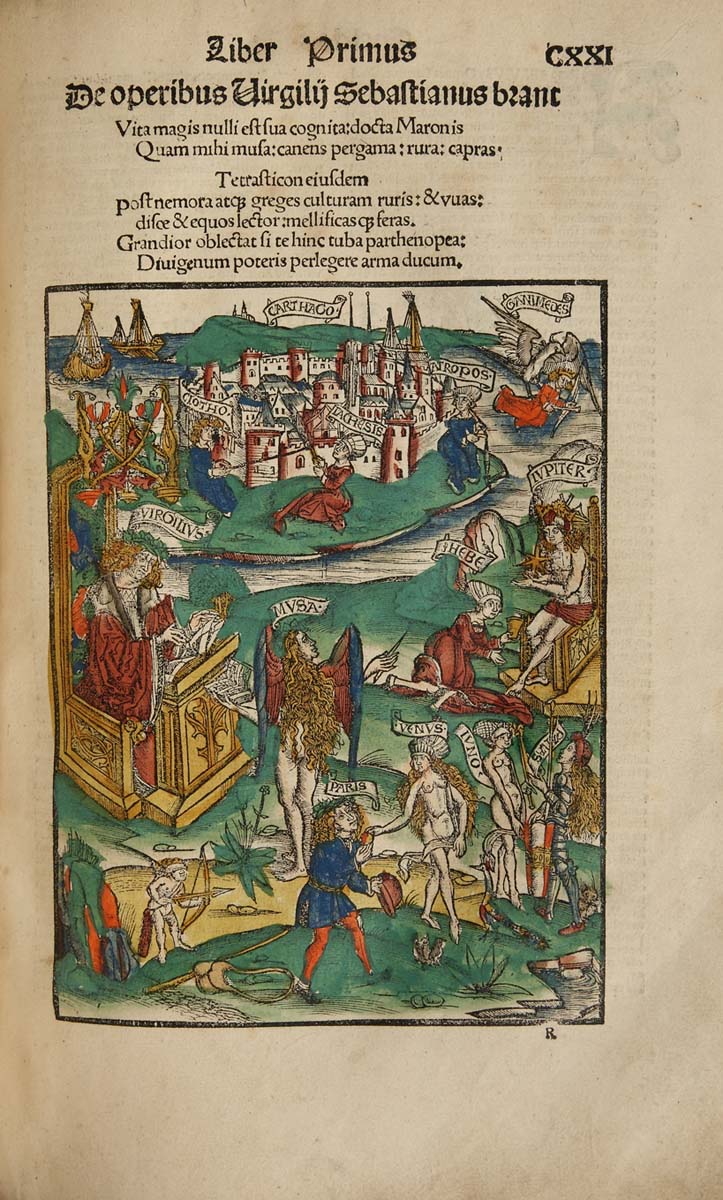 Liber Primus CXXI
De operibus Uirgilij Sebastianus brant
Vita magis nulli est sua cognita: docta Maronis
Quam mihi musa: canens pergama: rura: capras.
Tetrasticon eiusdem
Post nemora atq; greges culturam ruris: & vuas:
disce & equos lector: mellificas q; feras.
Grandior oblectat si te hinc tuba parthenopea:
Diuigenum poteris perlegere arma ducum.
CARTHAGO
GANIMEDES
ATROPOS
CLOTHO
LACHESIS
IVPITER
VIRGILIVS
HEBE
MVSA
VENVS
IVNO
PARIS
R